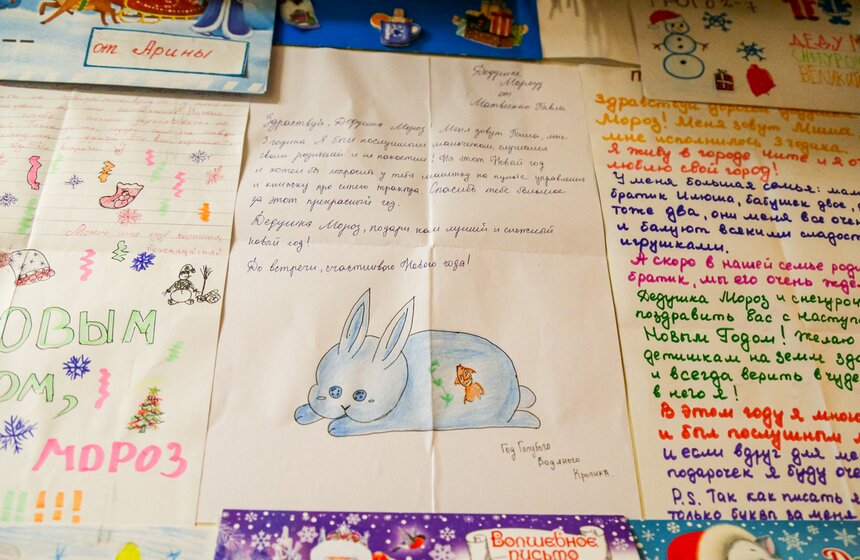 от Арины
Можно мне ещё
ОВЫМ
ОМ,
МОРОЗ
Дедушке
Морозу
от
Матвиенко Павла
Здравствуй, Дедушка Мороз! Меня зовут Паша, мне
3 годика. Я был послушным мальчиком слушался
своих родителей и не пакостил! На этот Новый год
я хотел бы попросить у тебя машинку на пульте управления
и книжку про синего трактора. Спасибо тебе большое
за этот прекрасный год.
Дедушка Мороз, подари нам лучший и снежный
новый год!
До встречи, счастливого Нового года!
Год Голубого
Водяного
Кролика.
ДЕДУ М
СНЕГУРО
ВЕЛИКИЙ
Здравствуй
Мороз! Меня зовут Миша
мне исполнилось 3 годика.
Я живу в городе Чите и я о
люблю свой город!
У меня большая семья: мам
братик Илюша, бабушек двое,
тоже два, они меня все очен
и балуют всякими сладост
игрушками.
А скоро в нашей семье род
братик, мы его очень жде
Дедушка Мороз и снегуроч
поздравить вас с наступа
Новым Годом! Желаю
детишкам на земле здо
и всегда верить в чуде
в него я!
В этом году я мног
и был послушным м
и если вдруг для ме
подарочек я буду оче
P.S. Так как писать я
только букв за меня
Волшебное
письмо